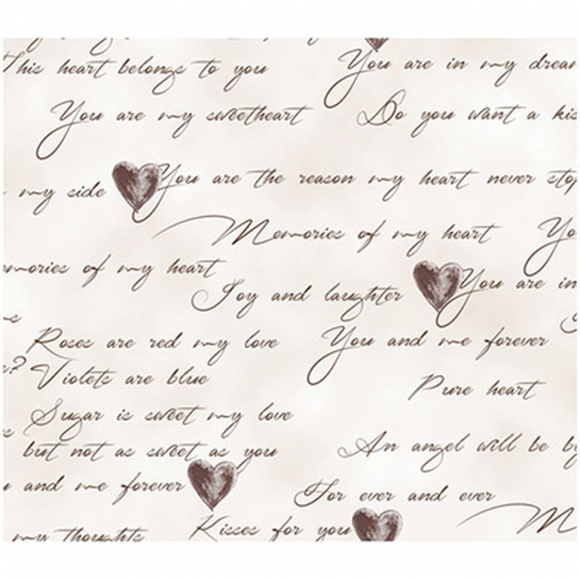 This heart belongs to you
You are in my dream
You are my sweetheart
Do you want a kis
my side
You are the reason my heart never stop
Memories of my heart
Yo
mories of my heart
Joy and laughter
You are in
Roses are red my love
You and me forever
Violets are blue
Pure heart
Sugar is sweet my love
but not as sweet as you
An angel will be b
and me forever
For ever and ever
my thoughts
Kisses for you
M